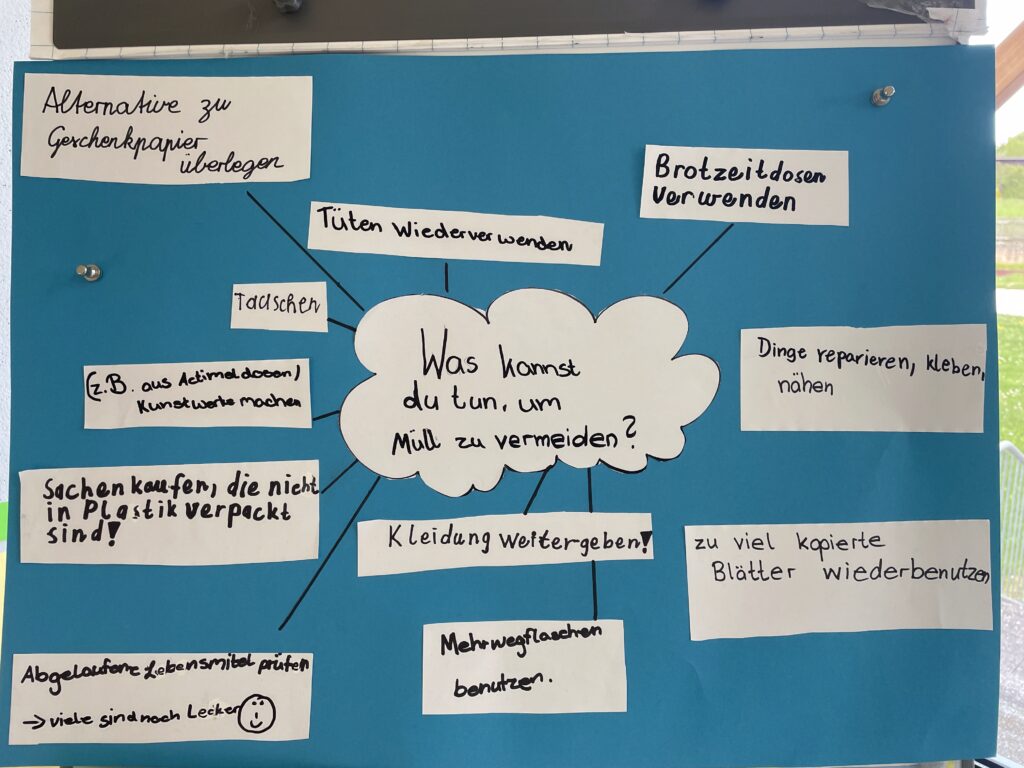 Alternative zu
Geschenkpapier
überlegen
Tüten wiederverwenden
Brotzeitdosen
verwenden
Tauschen
Was kannst
du tun, um
Müll zu vermeiden?
Dinge reparieren, kleben,
nähen
(z.B. aus Actimeldosen)
Kunstwerke machen
Sachen kaufen, die nicht
in Plastik verpackt
sind!
Kleidung weitergeben!
zu viel kopierte
Blätter wiederbenutzen
Mehrwegflaschen
benutzen.
Abgelaufene Lebensmittel prüfen
→ viele sind noch Lecker